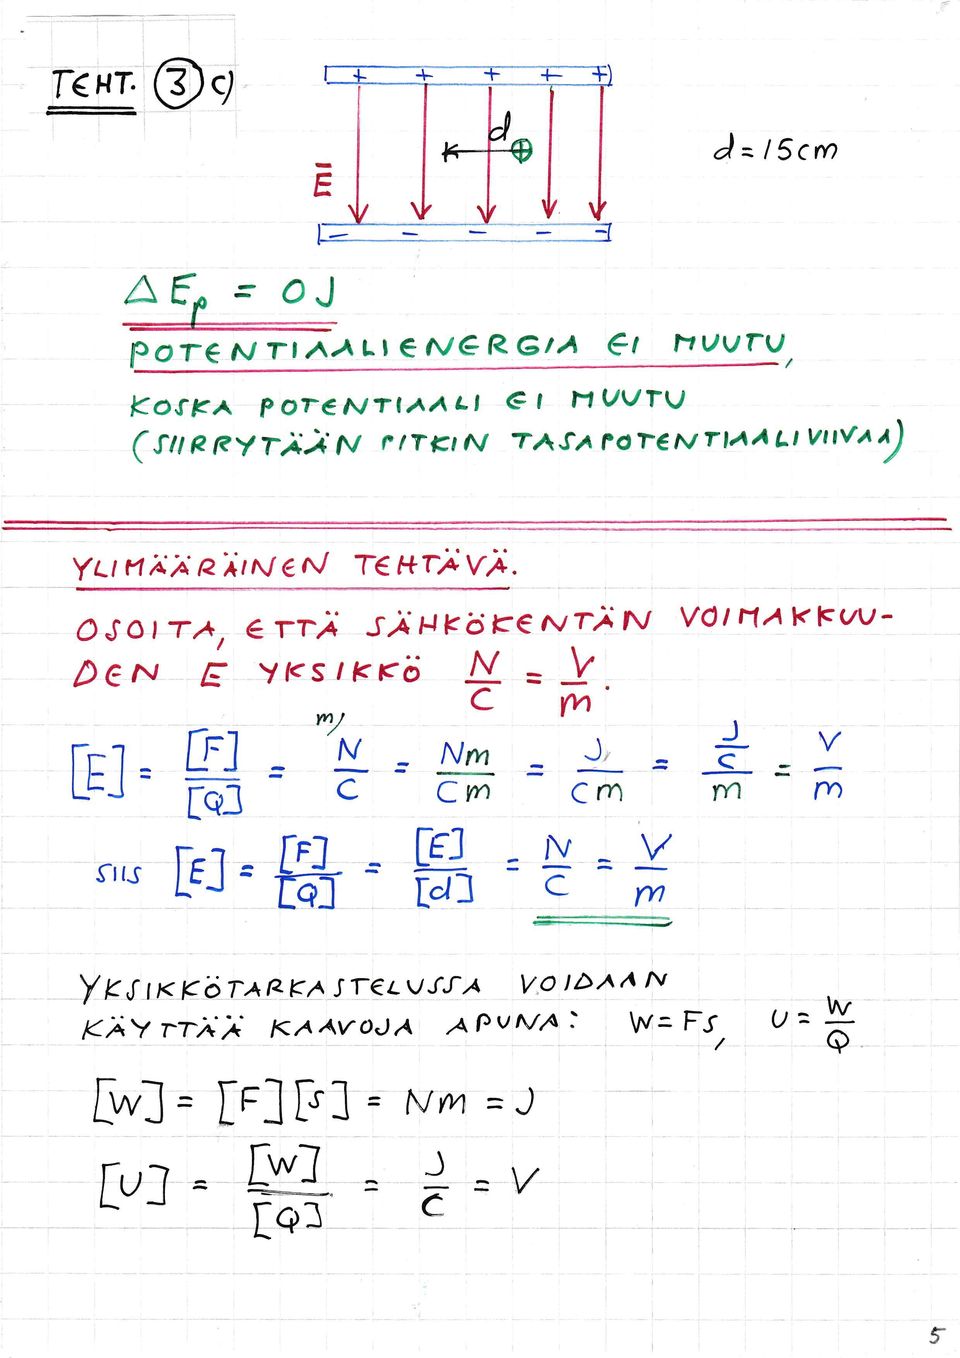 TEHT. ③ c)
+ + + + +
d
⊕
d = 15 cm
Ē
- - - - -
ΔEp = 0 J
POTENTIAALIENERGIA EI MUUTU,
KOSKA POTENTIAALI EI MUUTU
(SIIRRYTÄÄN PITKIN TASAPOTENTIAALIVIIVAA)
YLIMÄÄRÄINEN TEHTÄVÄ.
OSOITA, ETTÄ SÄHKÖKENTÄN VOIMAKKUU-
DEN E YKSIKKÖ N/C = V/m.
[E] = [F]/[Q] = m) N/C = Nm/Cm = J/Cm = (J/C)/m = V/m
SIIS [E] = [F]/[Q] = [E]/[d] = N/C = V/m
YKSIKKÖTARKASTELUSSA VOIDAAN
KÄYTTÄÄ KAAVOJA APUNA: W = Fs, U = W/Q
[W] = [F][s] = Nm = J
[U] = [W]/[Q] = J/C = V
5